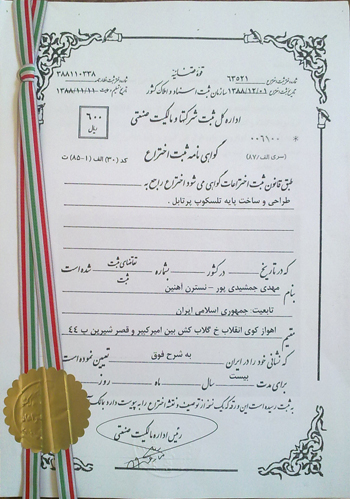 قوه قضائیه
سازمان ثبت اسناد و املاک کشور
شماره ثبت اختراع ۶۳۵۲۱
تاریخ ثبت اختراع ۱۳۸۸/۱۲/۰۱
شماره ثبت اظهارنامه ۳۸۸۱۱۰۳۳۸
۱۳۸۸/۱۱/۱۱
۶۰۰
ریال
اداره کل ثبت شرکتها و مالکیت صنعتی
۰۰۶۱۰۰ *
(سری الف/۸۷)
گواهی نامه ثبت اختراع
کد (۳۰) الف (۱-۸۵) ث
طبق قانون ثبت اختراعات گواهی می شود اختراع راجع به
طراحی و ساخت پایه تلسکوپ پرتابل.
که در تاریخ در کشور بشماره تقاضای ثبت شده است
ثبت
بنام مهدی جمشیدی پور – نسترن آهنین
تابعیت: جمهوری اسلامی ایران
مقیم اهواز کوی انقلاب خ گلاب کش بین امیرکبیر و قصر شیرین پ ۴۴
که نشانی خود را در ایران به شرح فوق تعیین نموده است
برای مدت بیست سال ماه روز
به ثبت رسیده است این ورقه که یک نسخه از توصیف و نقشه اختراع را به پیوست دارد
رئیس اداره مالکیت صنعتی